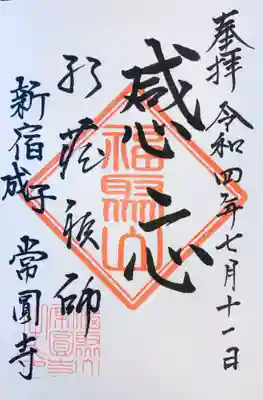 奉拝 令和四年七月十一日
感応
祖師
福聚山
新宿
成子
常圓寺